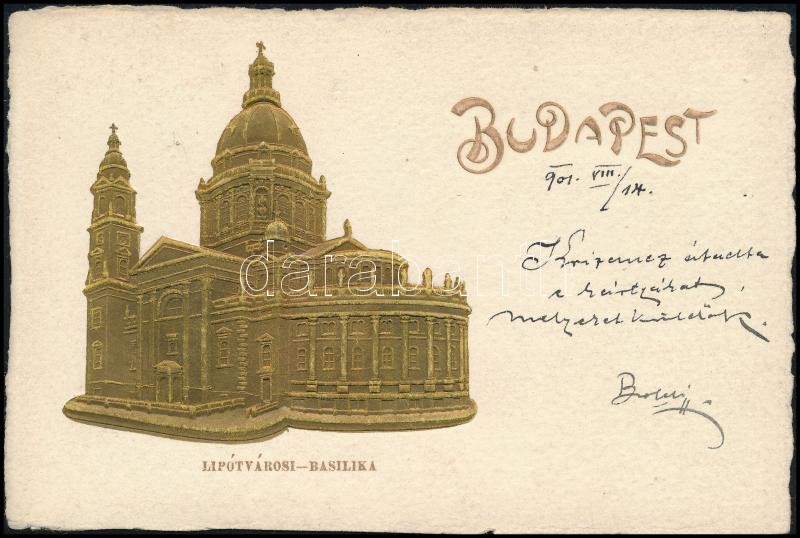 BUDAPEST
901. VIII./14.
átadta
e kártyákat,
melyeket küldök.
darabanth.com
LIPÓTVÁROSI—BASILIKA